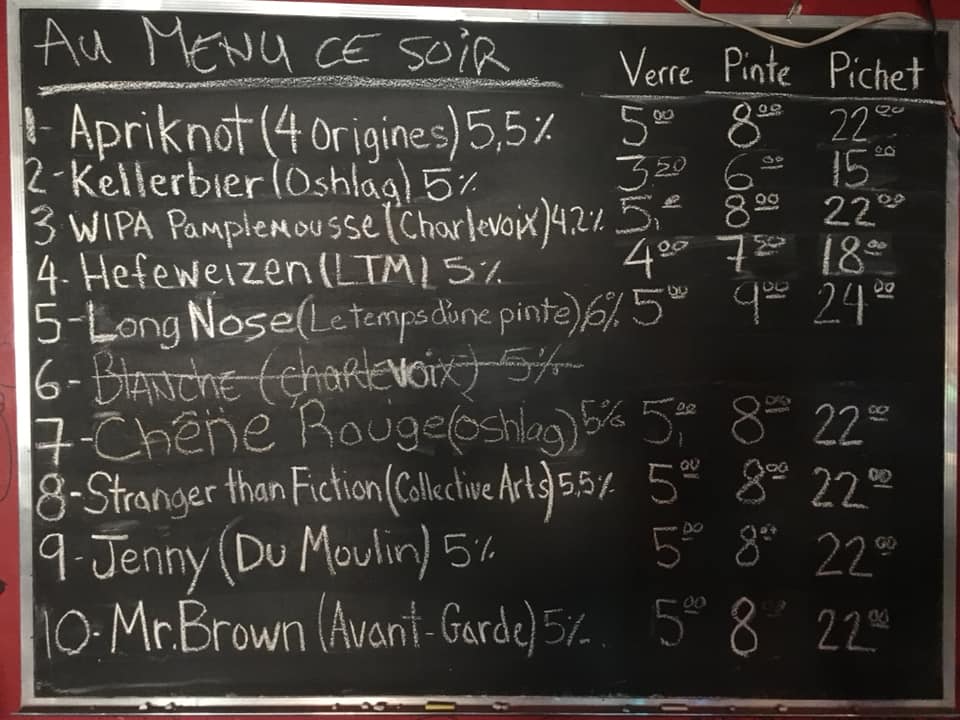 Au Menu ce soir Verre Pinte Pichet
1- Apriknot (4 Origines) 5,5% 5.00 8.00 22.00
2- Kellerbier (Oshlag) 5% 3.50 6.00 15.00
3 WIPA Pamplemousse (Charlevoix) 4,2% 5,00 8.00 22.00
4. Hefeweizen (LTM) 5% 4.00 7.50 18.00
5- Long Nose (Le temps d'une pinte) 6% 5.00 9.00 24.00
6- Blanche (Charlevoix) 5%
7- Chêne Rouge (Oshlag) 5% 5,00 8.00 22.00
8- Stranger than Fiction (Collective Arts) 5,5% 5.00 8.00 22.00
9- Jenny (Du Moulin) 5% 5.00 8.00 22.00
10- Mr. Brown (Avant-Garde) 5% 5.00 8.00 22.00